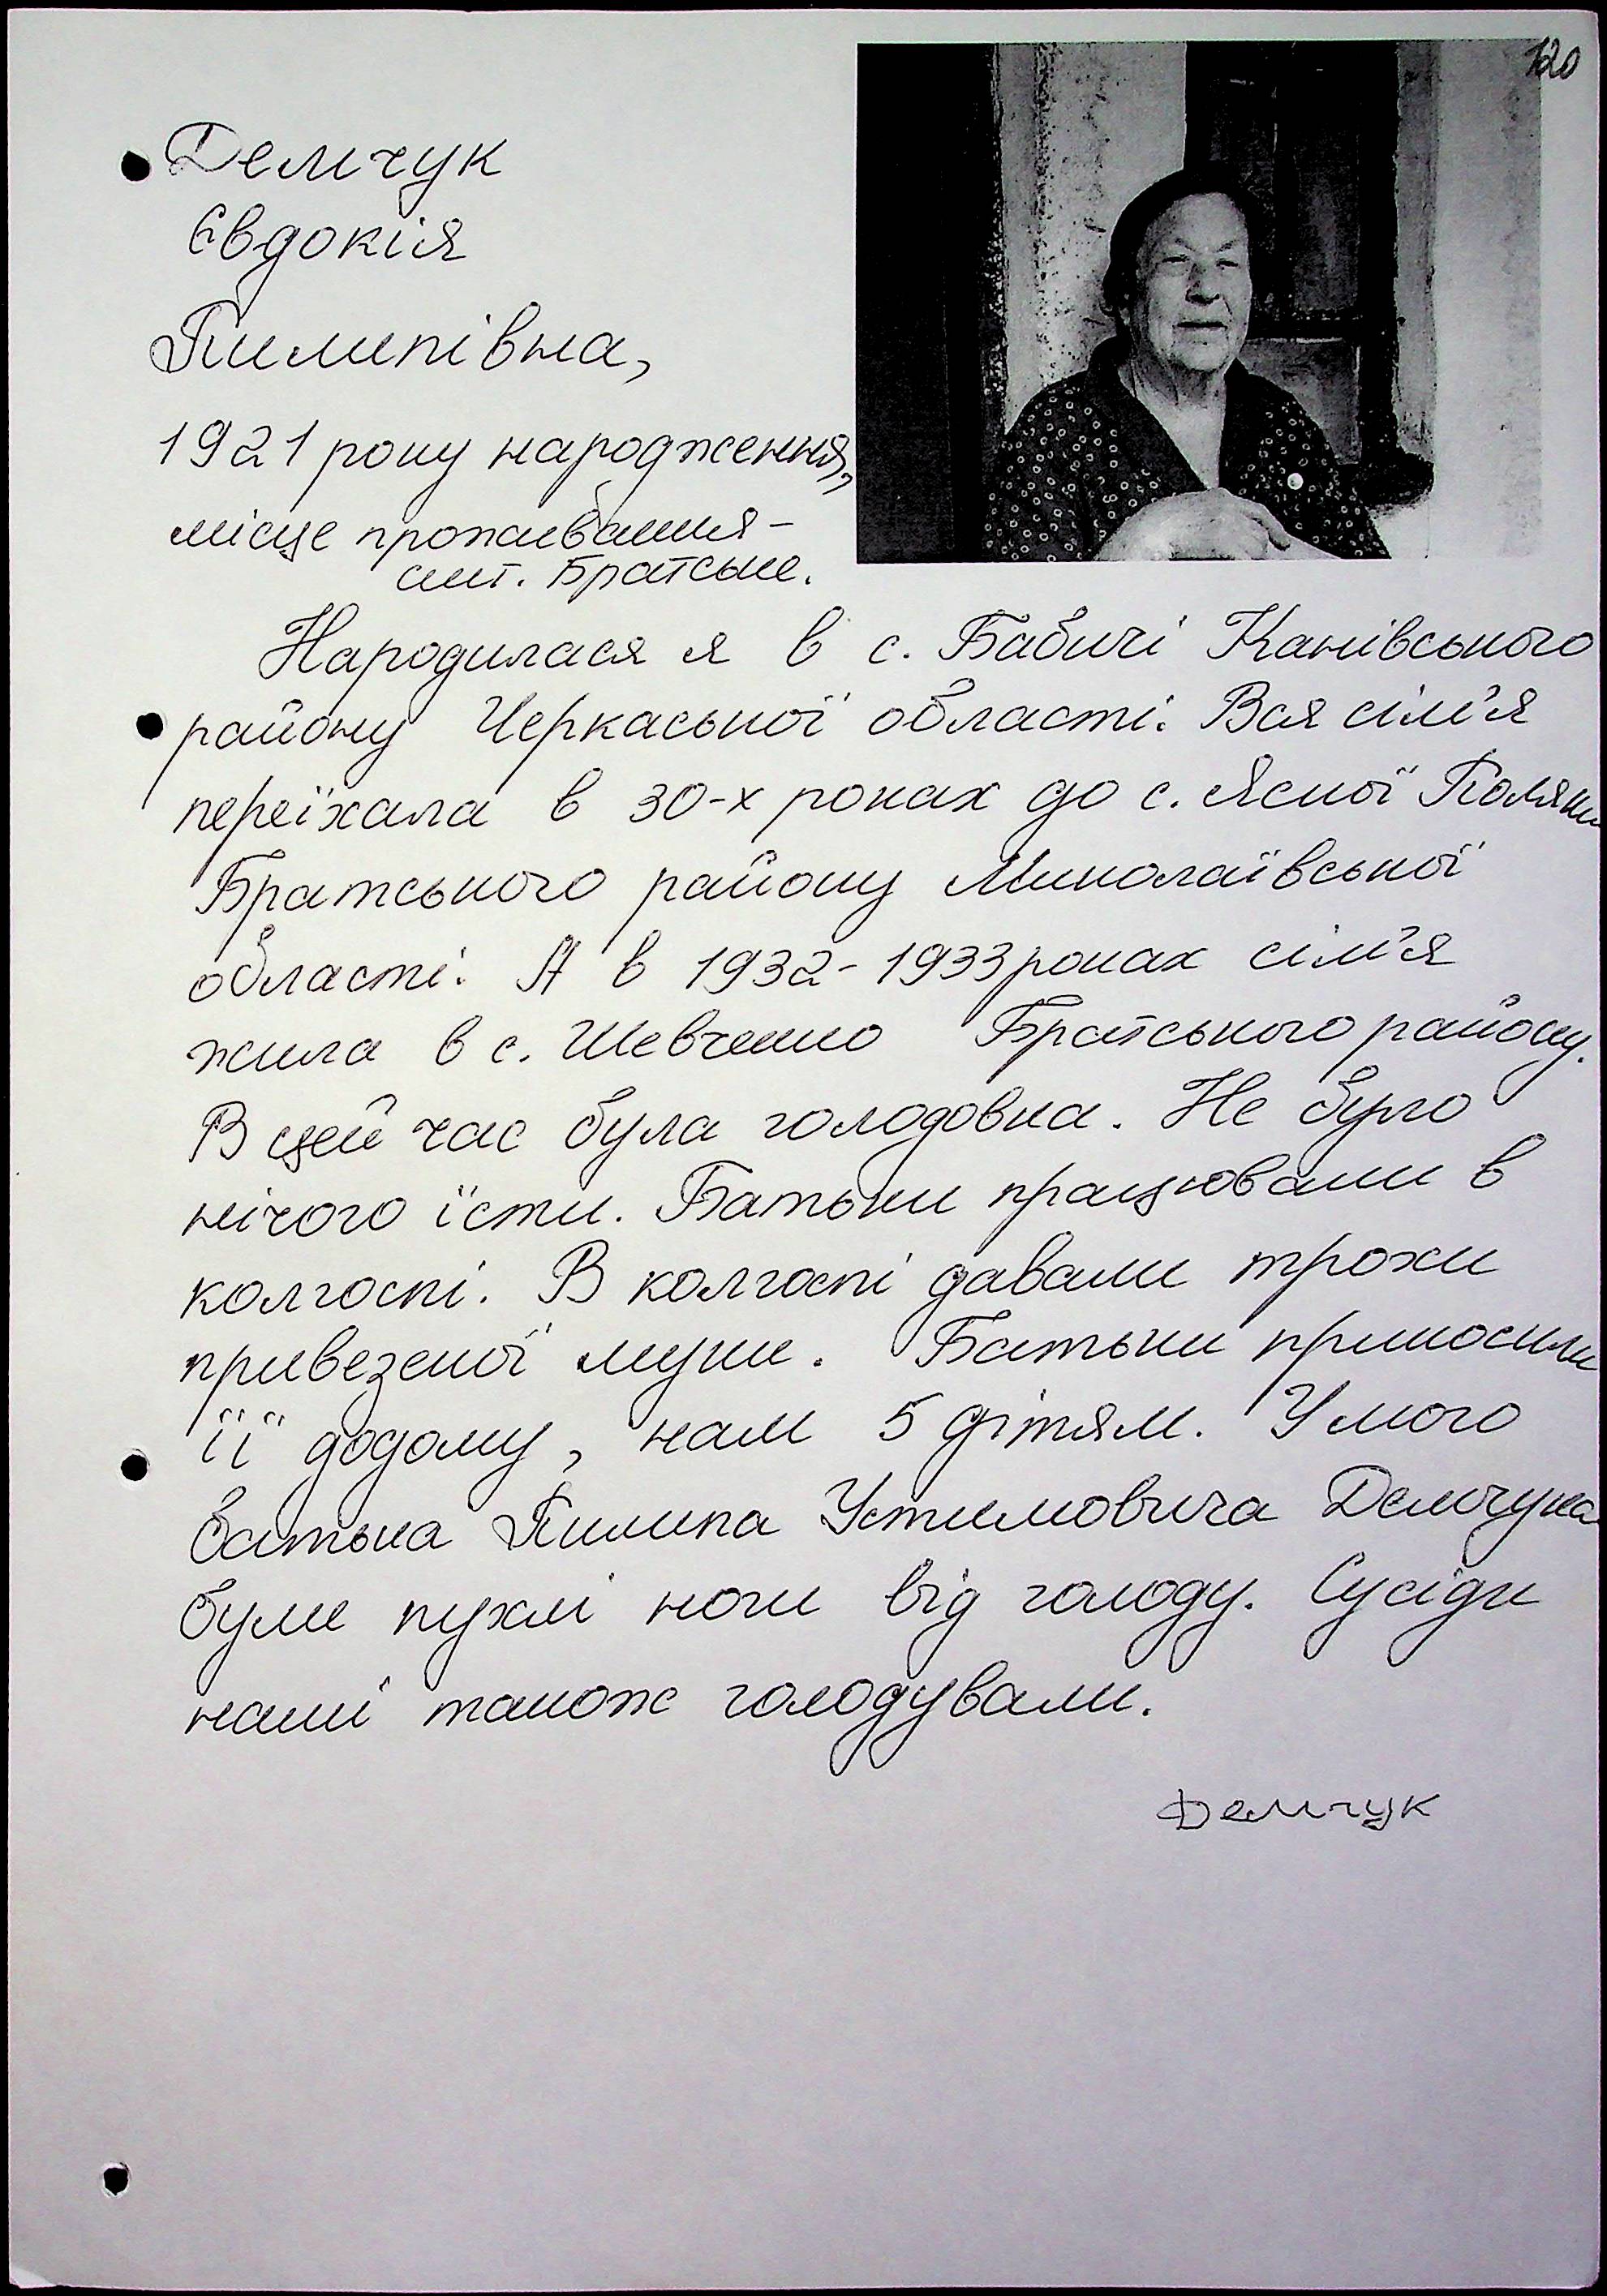 120
Демчук
Євдокія
Пилипівна,
1921 року народження,
місце проживання –
смт. Братське.
Народилася я в с. Бабичі Канівського
району Черкаської області. Вся сім'я
переїхала в 30-х роках до с. Ясної Поляни
Братського району Миколаївської
області. А в 1932-1933 роках сім'я
жила в с. Шевченко Братського району.
В цей час була голодовка. Не було
нічого їсти. Батьки працювали в
колгоспі. В колгоспі давали трохи
привезеної муки. Батьки приносили
її додому, нам 5 дітям. У мого
батька Пилипа Устимовича Демчука
були пухлі ноги від голоду. Сусіди
наші також голодували.
Демчук